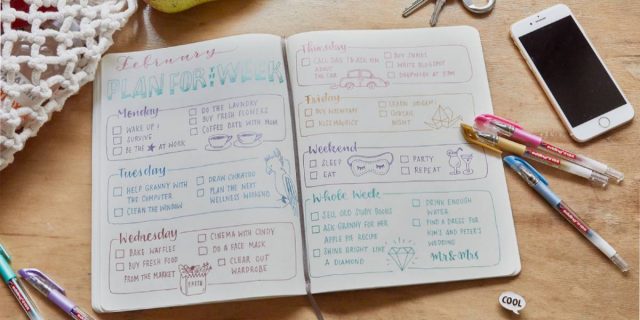 February
PLAN FOR THE WEEK
Monday
WAKE UP!
SURVIVE
BE THE ★ AT WORK
DO THE LAUNDRY
BUY FRESH FLOWERS
COFFEE DATE WITH MUM
Tuesday
HELP GRANNY WITH
THE COMPUTER
CLEAN THE WINDOW
DRAW
PLAN THE NEXT
WELLNESS WEEKEND
Wednesday
BAKE WAFFLES
BUY FRESH FOOD
FROM THE MARKET
CINEMA WITH CINDY
DO A FACE MASK
CLEAR OUT
WARDROBE
Thursday
CALL DAD TO ASK HIM
ABOUT
THE CAR
BUY SNACKS
WRITE BLOGPOST
AT 8PM
Friday
BUY
KISS MAURICE
LEARN ORIGAMI
NIGHT
Weekend
SLEEP
EAT
PARTY
REPEAT
Whole Week
SELL OLD STUDY BOOKS
ASK GRANNY FOR HER
APPLE PIE RECIPE
SHINE BRIGHT LIKE
A DIAMOND
DRINK ENOUGH
WATER
FIND A DRESS FOR
KIM'S AND PETER'S
WEDDING
Mr & Mrs
COOL